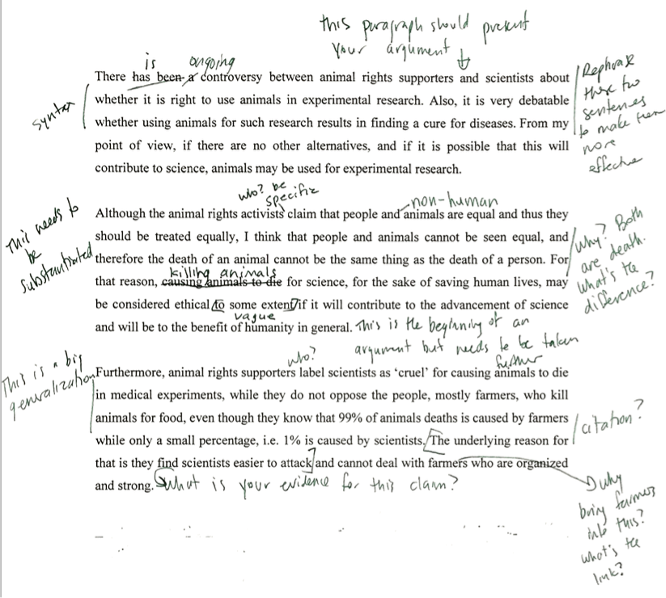 this paragraph should present
your argument ↓
is ongoing
There has been a controversy between animal rights supporters and scientists about
whether it is right to use animals in experimental research. Also, it is very debatable
whether using animals for such research results in finding a cure for diseases. From my
point of view, if there are no other alternatives, and if it is possible that this will
contribute to science, animals may be used for experimental research.
syntax
Rephrase
these two
sentences
to make them
more
effective
who? be
specific
non-human
Although the animal rights activists claim that people and animals are equal and thus they
should be treated equally, I think that people and animals cannot be seen equal, and
therefore the death of an animal cannot be the same thing as the death of a person. For
killing animals
that reason, causing animals to die for science, for the sake of saving human lives, may
be considered ethical to some extent if it will contribute to the advancement of science
vague
and will be to the benefit of humanity in general. This is the beginning of an
argument but needs to be taken
further
This needs to
be
substantiated
Why? Both
are death.
What's the
difference?
who?
Furthermore, animal rights supporters label scientists as ‘cruel’ for causing animals to die
in medical experiments, while they do not oppose the people, mostly farmers, who kill
animals for food, even though they know that 99% of animals deaths is caused by farmers
while only a small percentage, i.e. 1% is caused by scientists. The underlying reason for
that is they find scientists easier to attack and cannot deal with farmers who are organized
and strong. What is your evidence for this claim?
This is a big
generalization
citation?
why
bring farmers
into this?
what's the
link?